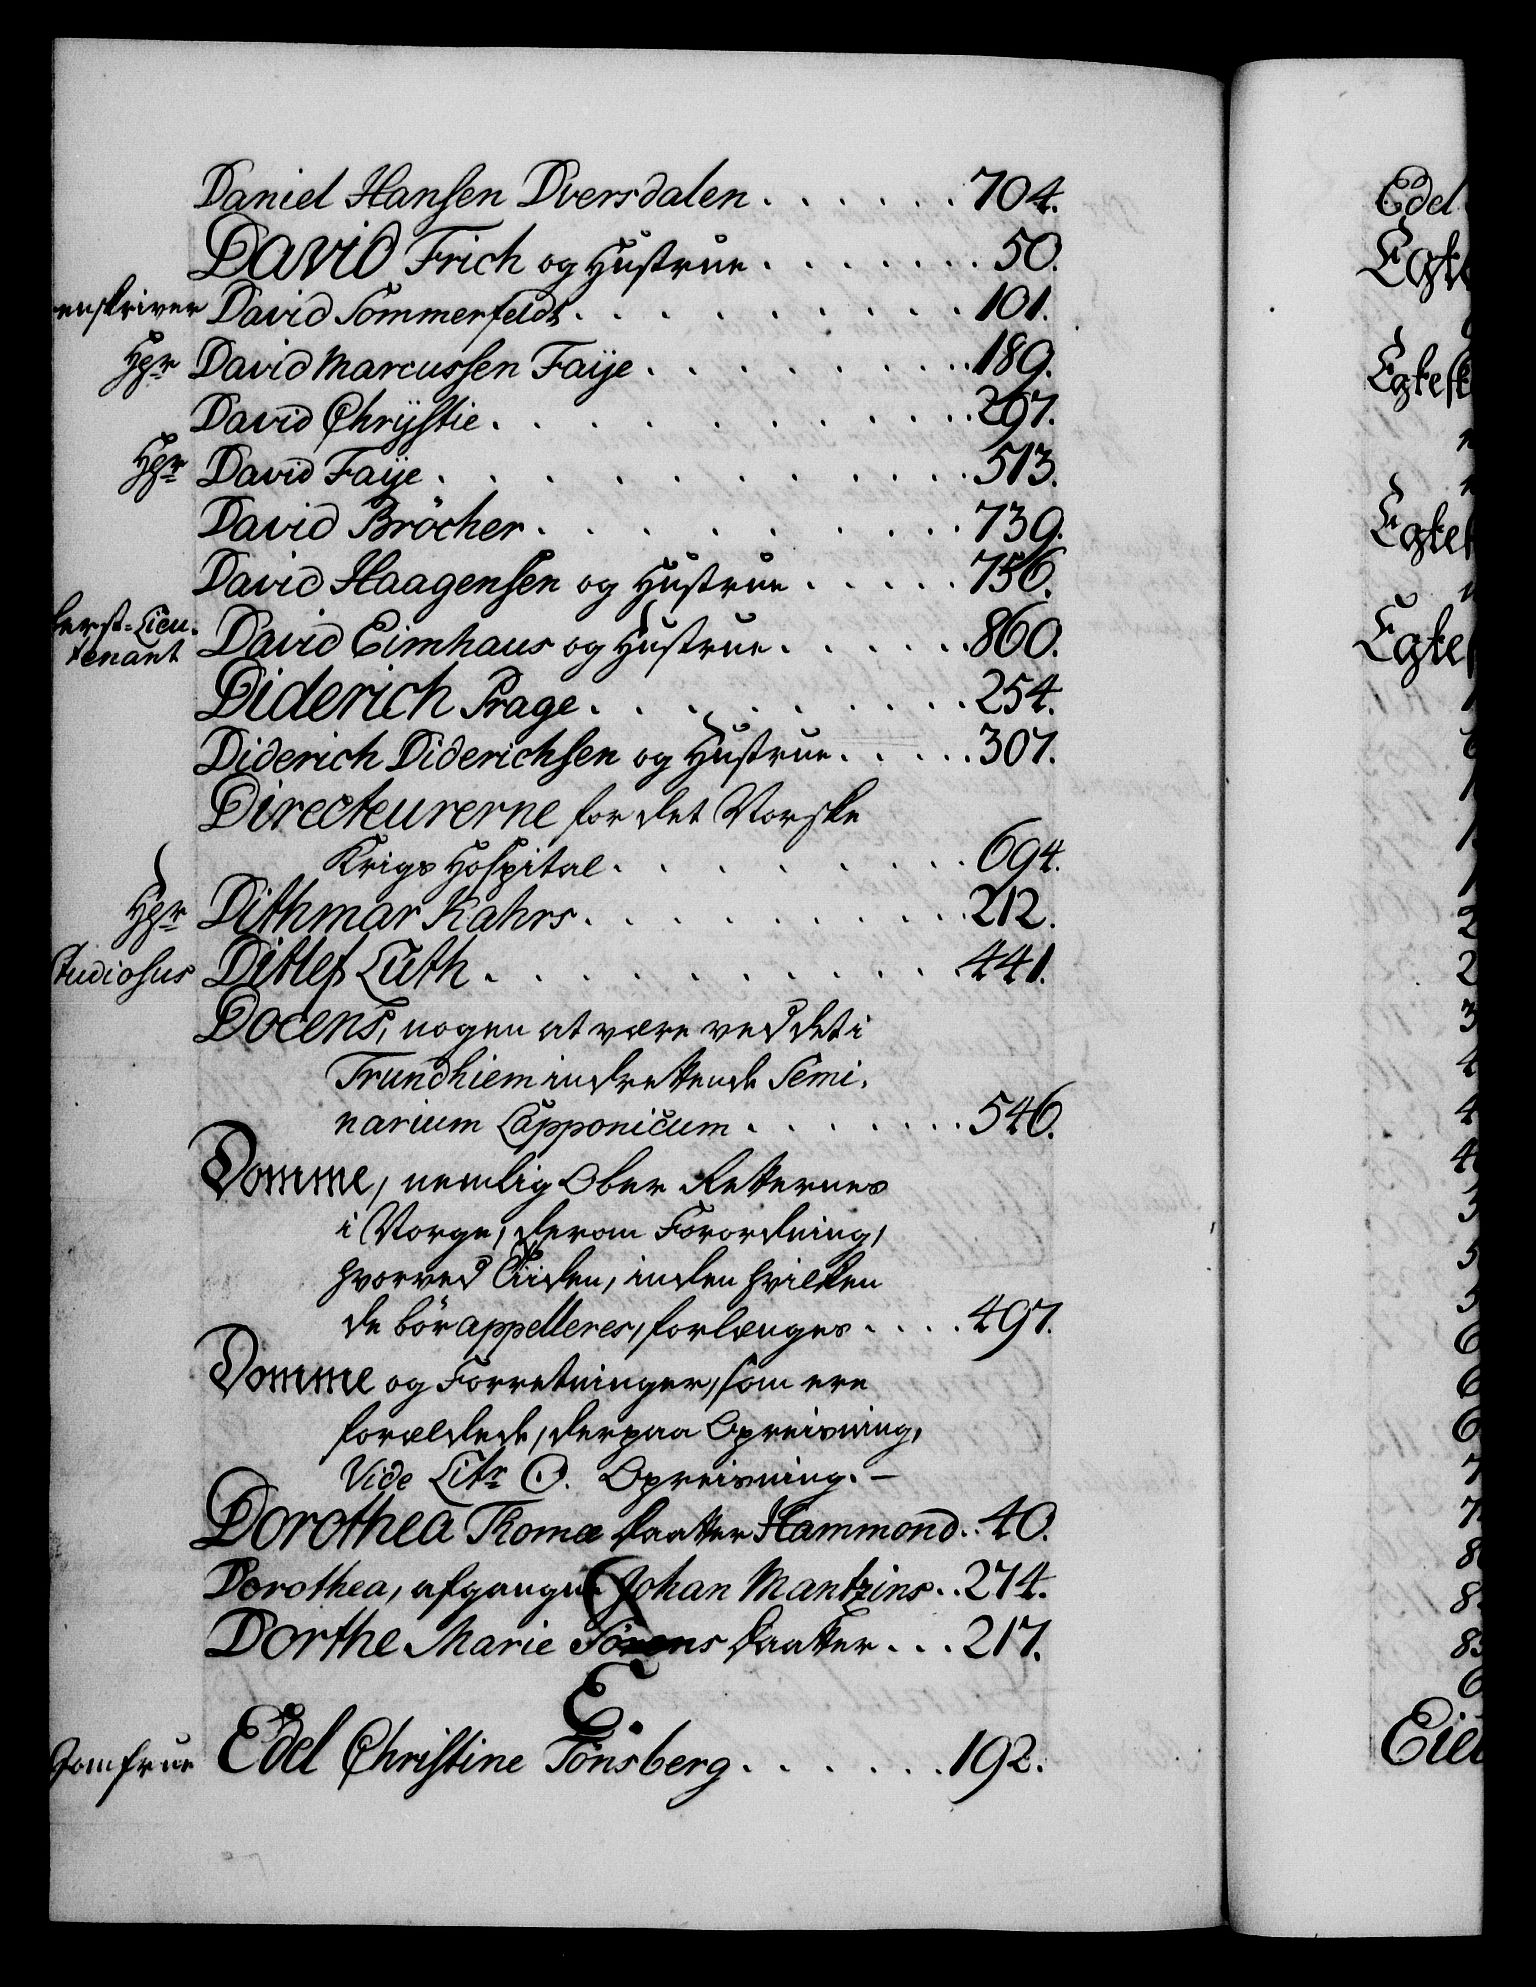 Daniel Hansen Dversdalen . . . . . . 704.
David Frich og Hustrue . . . . . . . 50.
enskriver David Sommerfeldt . . . . . . . . . 101.
Hgr David Marcussen Faije . . . . . . . . 189.
David Chrijstie . . . . . . . . . . 297.
Hgr David Faije . . . . . . . . . . . 513.
David Bröcher . . . . . . . . . . 739.
David Haagensen og Hustrue . . . . . 756.
berst-Lieu-
tenant David Eimhaus og Hustrue . . . . . . 860.
Diderich Prage . . . . . . . . . 254.
Diderich Diderichsen og Hustrue . . . . . 307.
Directeurerne for det Norske
Krigs Hospital . . . . . . . . 694.
Hgr Dithmar Kahrs . . . . . . . . . 212.
Studiosus Ditlef Luth . . . . . . . . . . 441.
Docens, nogen at være ved det i
Trundhiem indrettende Semi-
narium Lapponicum . . . . . . . 546.
Domme, nemlig Ober Retternes
i Norge, derom Forordning,
hvorved Tiiden, inden hvilken
de bör appelleres, forlænges . . . . 497.
Domme og Forretninger, som ere
forældede, derpaa Opreisning,
Vide Litr O. Opreisning. –
Dorothea Thomæ Daatter Hammond . . 40.
Dorothea, afgangne Johan Mantzins . . 274.
Dorthe Marie Sörens Daatter . . . 217.
E.
Jomfrue Edel Christine Tönsberg . . . . . . 192.
Edel